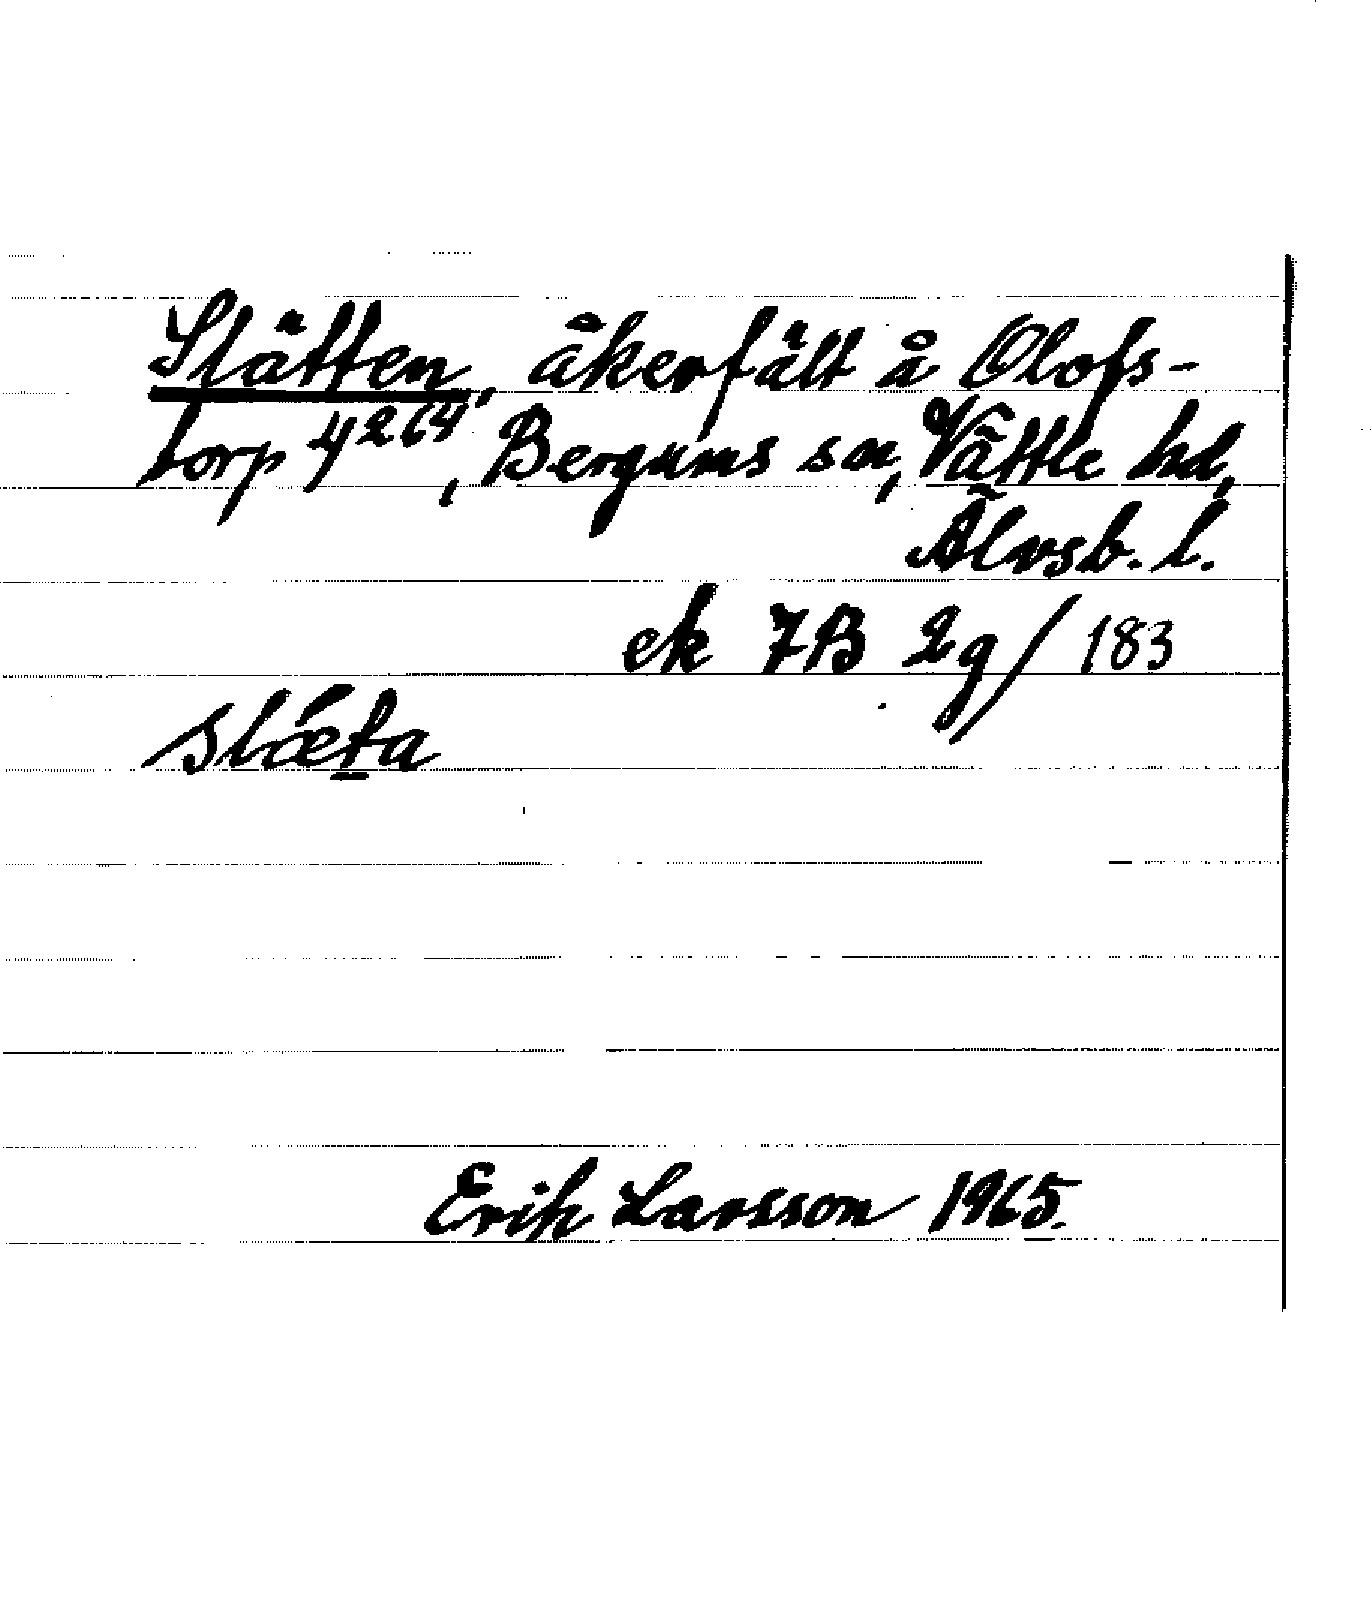 Slätten, åkerfält å Olofs-
torp 4²⁶⁴, Bergums sn, Vättle hd,
Älvsb. l.
ek 7B 2g/183
slǽṯa
Erik Larsson 1965.